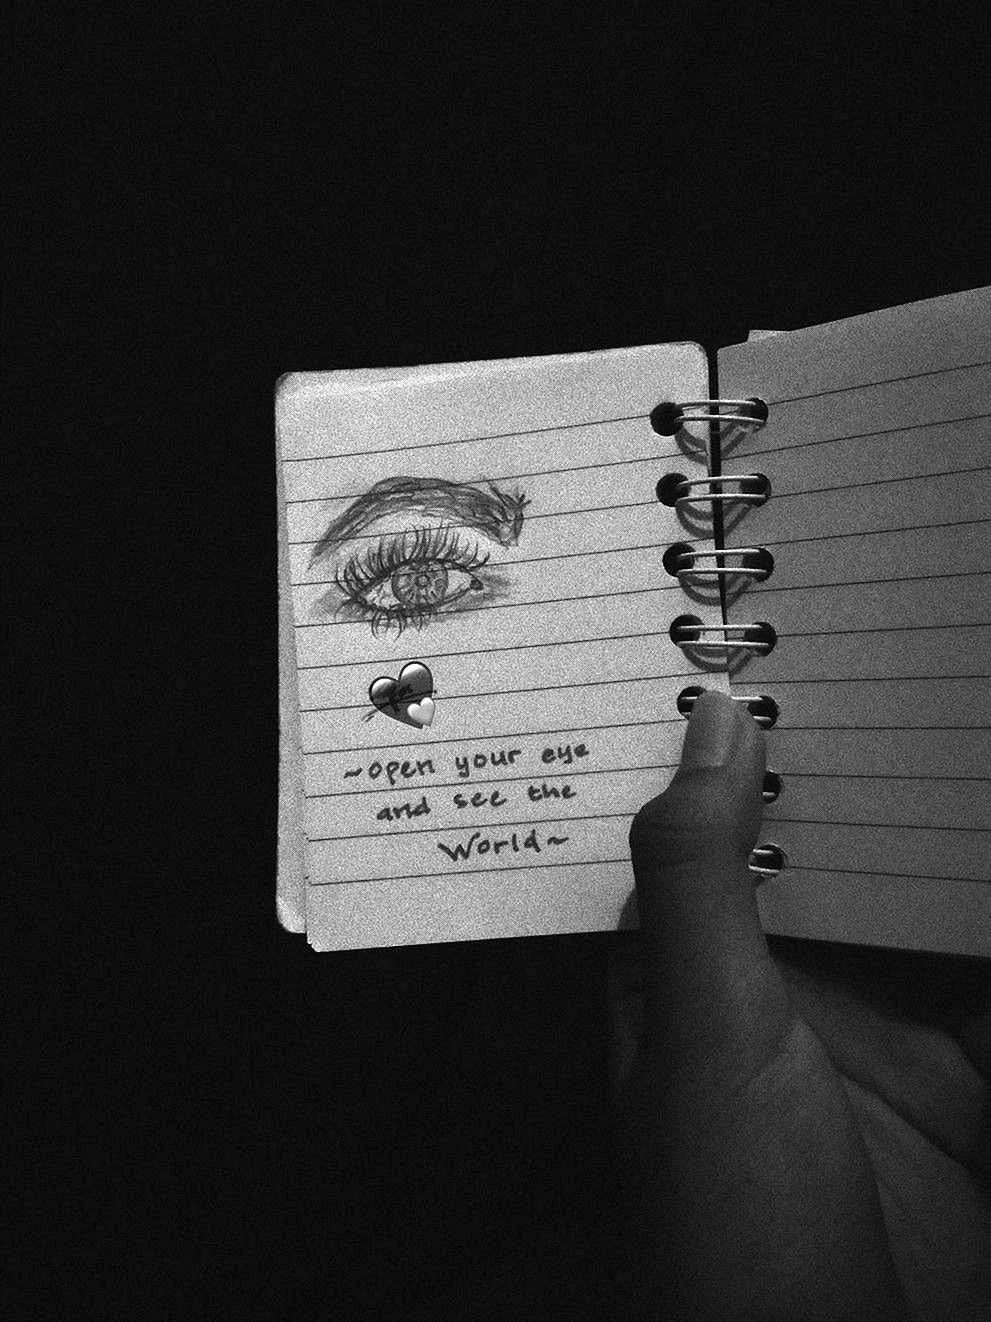 ~open your eye
and see the
World~